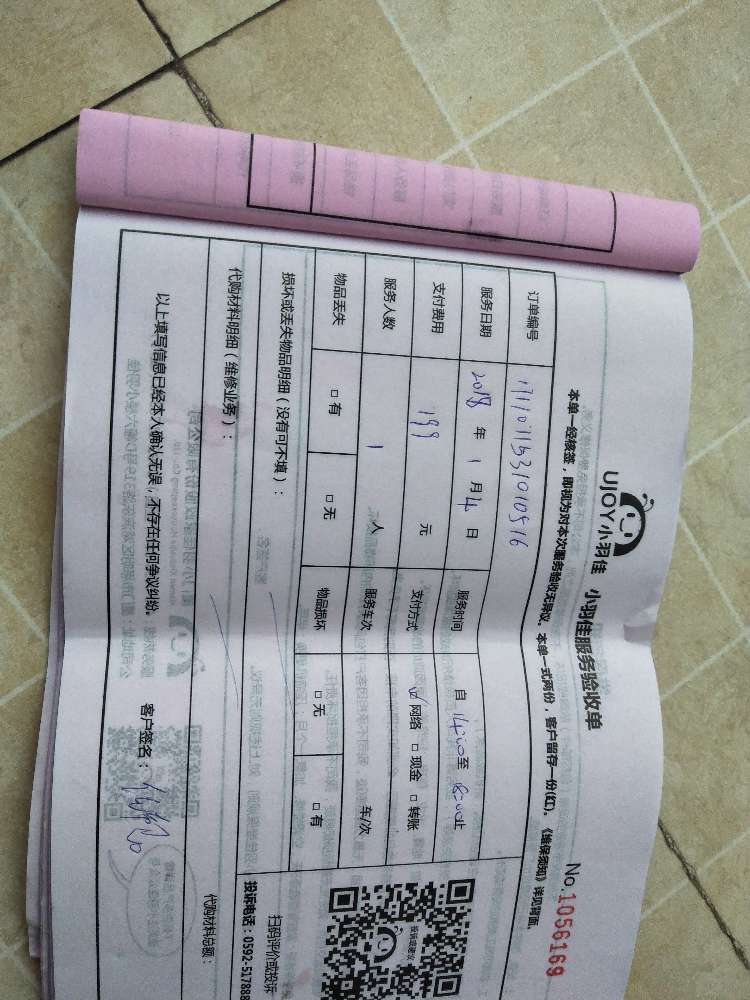 UJOY小羽佳 小羽佳服务验收单
No.1056169
本单一经核签，即视为对本次服务验收无异议。本单一式两份，客户留存一份(红)。《维保须知》详见背面。
订单编号 1711071531010916
服务日期 2018 年 1 月 4 日 服务时间 自 14:00 至 18:00 止
支付费用 199 元 支付方式 ☑网络 □现金 □转账
服务人数 1 人 服务车次 车/次
物品丢失 □有 □无 物品损坏 □无 □有
损坏或丢失物品明细（没有可不填）：
代购材料明细（维修业务）：
代购材料总额：
以上填写信息已经本人确认无误，不存在任何争议纠纷。
客户签名：
投诉或建议
扫码评价或投诉
投诉电话：0592-517888